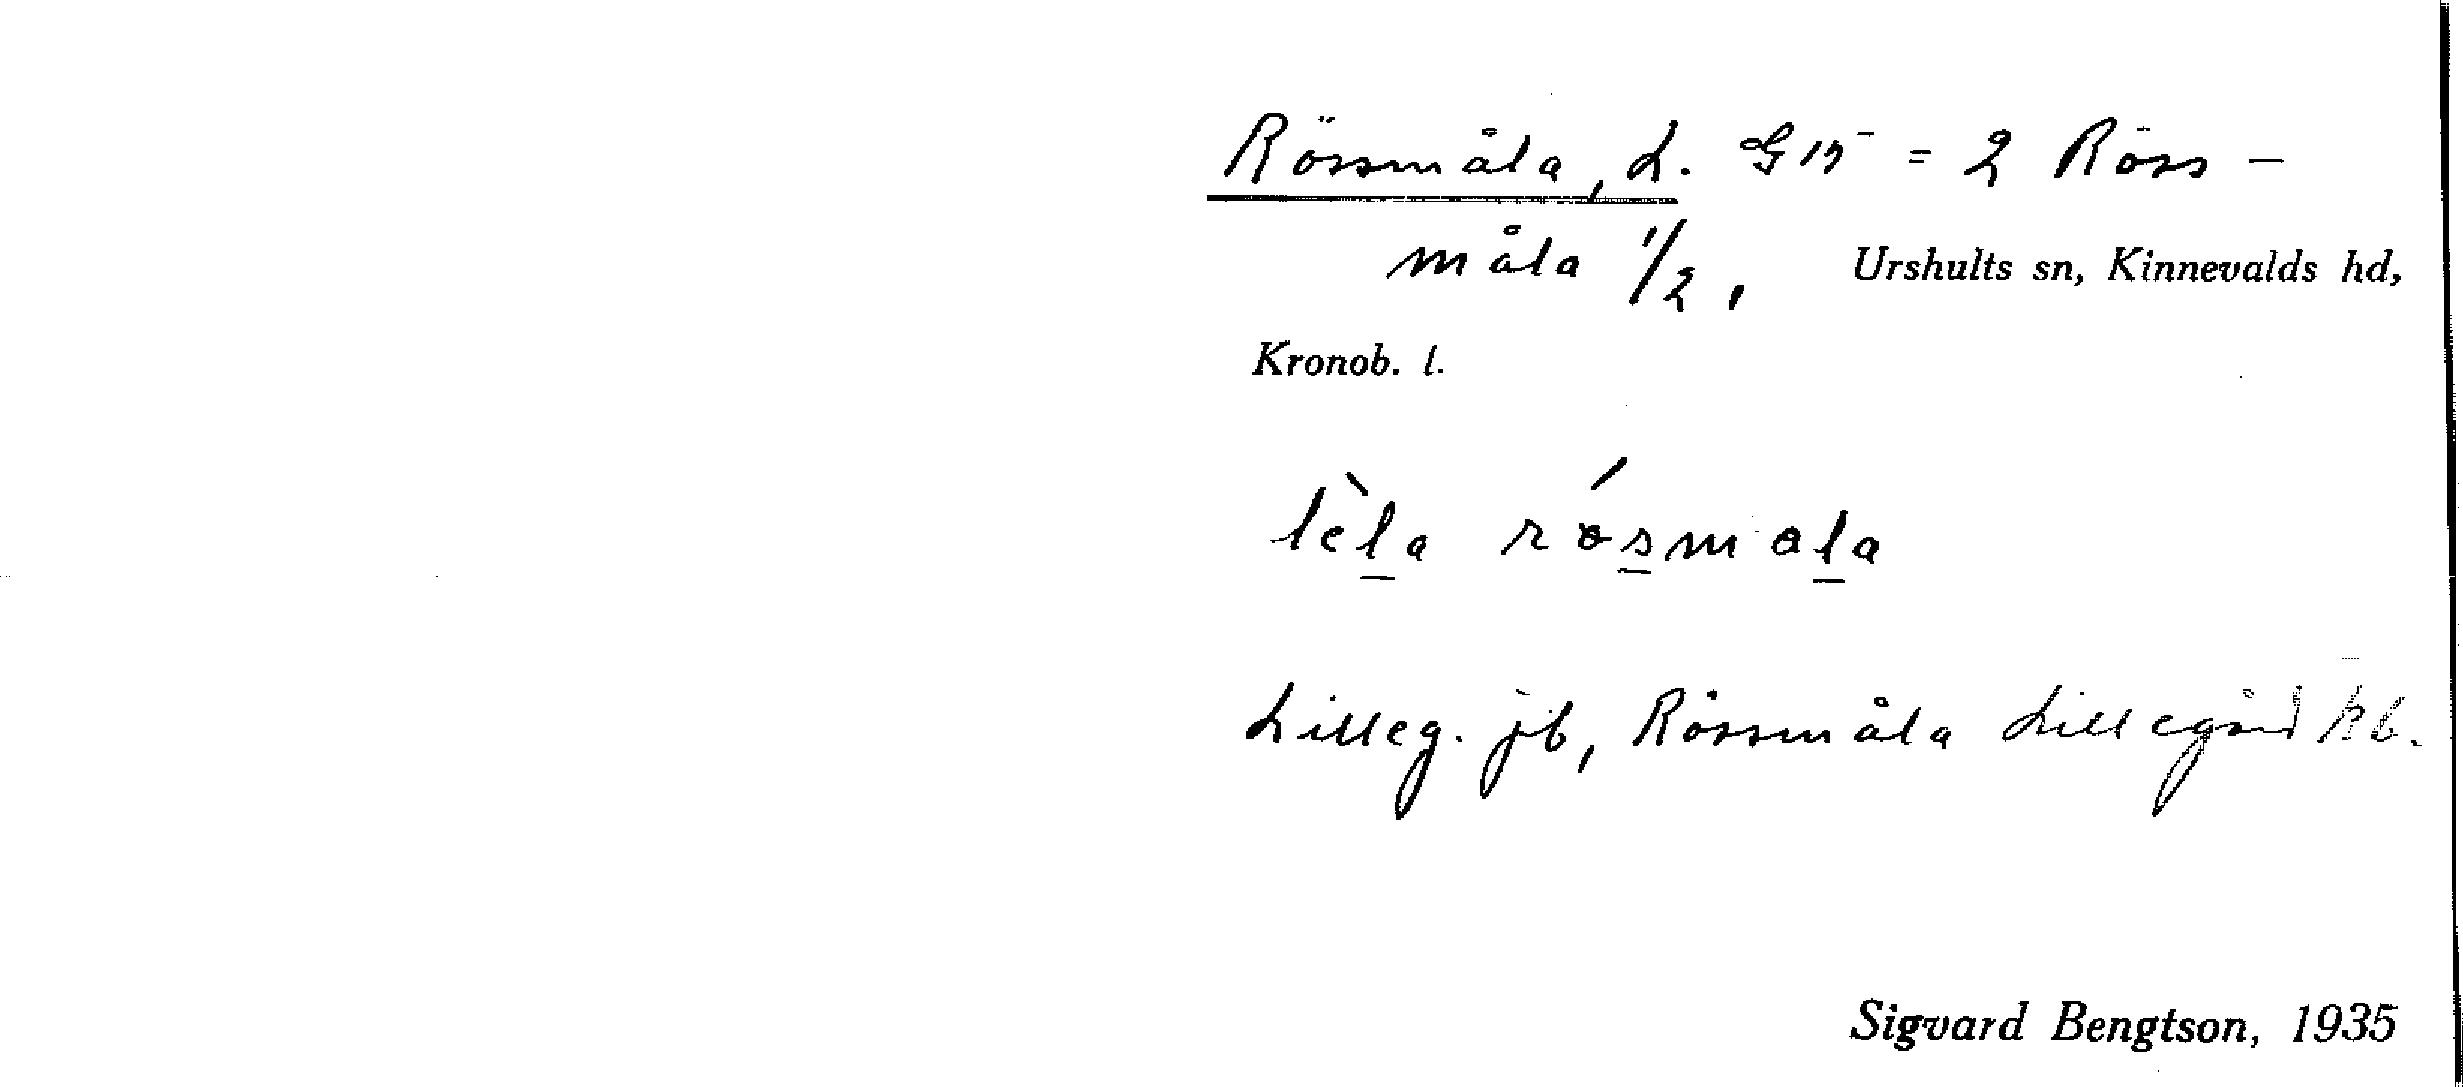 Rössmåla, L. G15 = 2 Röss-
måla 1/2, Urshults sn, Kinnevalds hd,
Kronob. l.
lèla rösmåla
Lilleg. jb, Rössmåla Lillegård kb.
Sigvard Bengtson, 1935